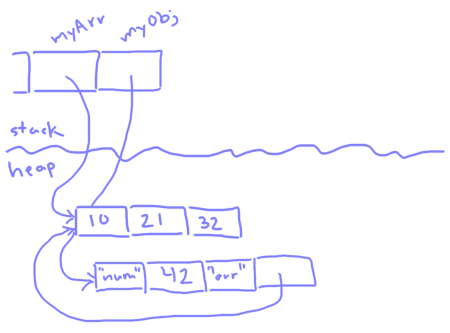 myArr myObj
stack
heap
10 21 32
"num" 42 "arr"